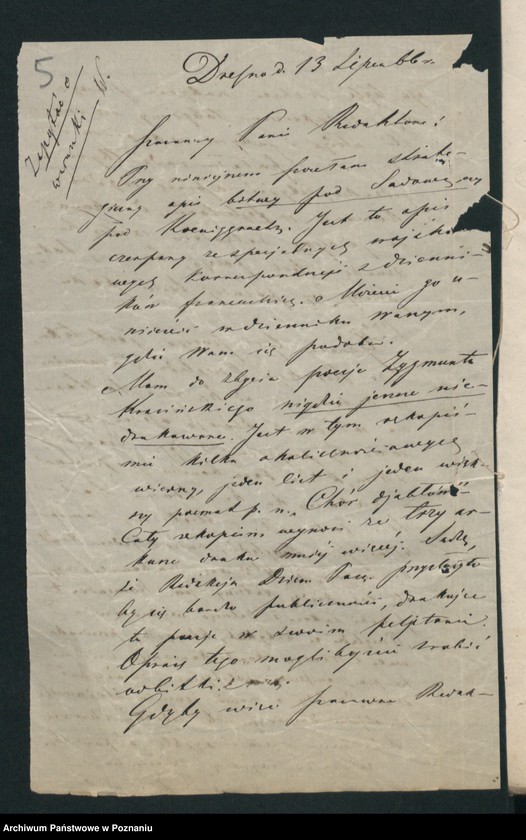 5
Zapytać o
warunki W.
Drezno d. 13 Lipca 66 r.
Szanowny Panie Redaktorze!
Przy niniejszem przesyłam strate-
giczny opis bitwy pod Sadową czy
pod Koeniggraetz. Jest to opis
czerpany ze specjalnych wojsko-
wych korrespondencji z dzienni-
ków francuskich. Możecie go u-
mieścić w dzienniku waszym,
jeżeli Wam się podoba.
Mam do zbycia poezje Zygmunta
Krasińskiego nigdzie jeszcze nie-
drukowane. Jest w tym rękopiś-
mie kilka okolicznościowych
wierszy, jeden list i jeden więk-
szy poemat p. n. Chór djabłów
Cały rękopism wynosi ze trzy ar-
kusze druku mniej więcej. Sądzę,
że Redakcja Dzien. Poz. przysłużyła
by się bardzo publiczności, drukując
te poezje w swoim feljetonie.
Oprócz tego moglibyście zrobić
odbitki z
Gdyby więc szanowna Redak-
Archiwum Państwowe w Poznaniu